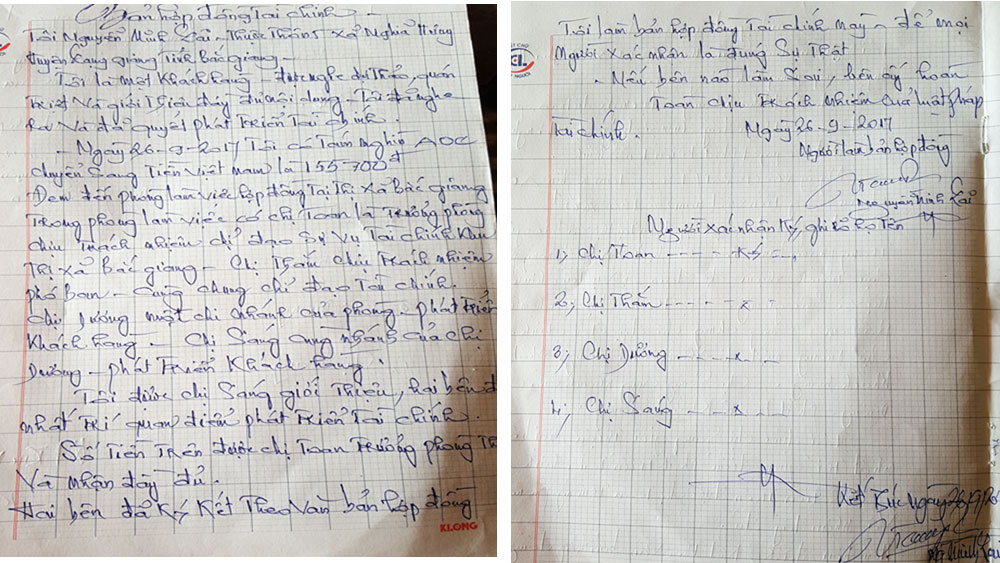 Bản hợp đồng Tài chính
Tôi Nguyễn Minh Lai - Thuộc Thôn 5 xã Nghĩa Hưng
Huyện Lạng giang Tỉnh Bắc giang -
Tôi là một Khách hàng - được nghe dự Thảo, quán
Triệt Và giới Thiệu đầy đủ nội dung - Tôi đã nghe
Rõ Và đã quyết phát Triển Tài chính.
- Ngày 26-9-2017 Tôi có Tám nghìn AOC
chuyển Sang Tiền Việt Nam là 155 700đ
Đem đến phòng làm việc hợp đồng Tại Thị xã Bắc giang
Trong phòng làm việc có chị Toan là Trưởng phòng
chịu Trách nhiệm chỉ đạo Sự Vụ Tài chính Khu
Thị xã Bắc giang - Chị Thắm chịu Trách nhiệm
phó ban - Cùng chung chỉ đạo Tài chính.
Chị Dương một chi nhánh của phòng - phát Triển
Khách hàng - Chị Sáng cùng nhánh của chị
Dương - phát Triển Khách hàng.
Tôi được chị Sáng giới Thiệu, hai bên đ
nhất Trí quan điểm phát Triển Tài chính.
Số Tiền Trên được chị Toan Trưởng phòng Th
Và nhận đầy đủ.
Hai bên đã Ký Kết Theo Văn bản hợp đồng
KLONG
Tôi làm bản hợp đồng Tài chính này - để mọi
Người Xác nhận là đúng Sự Thật
- Nếu bên nào làm Sai, bên ấy hoàn
Toàn chịu Trách nhiệm của luật pháp
Tài chính.
Ngày 26-9-2017
Người làm bản hợp đồng
Nguyễn Minh Lai
Người xác nhận Ký, ghi rõ họ Tên
1, Chị Toan - - - - Ký - -
2, Chị Thắm - - - - x -
3, Chị Dương - - - x - -
4, Chị Sáng - - x - -
Kết thúc Ngày 26/9/20